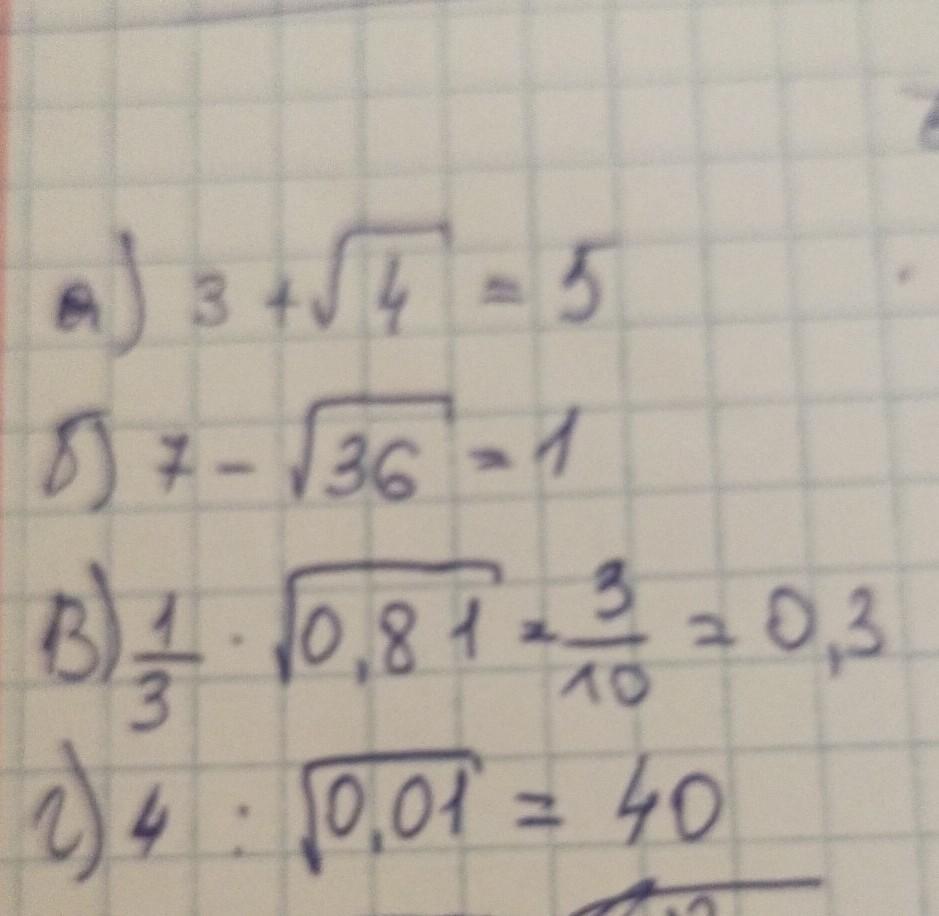 а) 3 + √4 = 5
б) 7 - √36 = 1
в) 1/3 · √0,81 = 3/10 = 0,3
г) 4 : √0,01 = 40